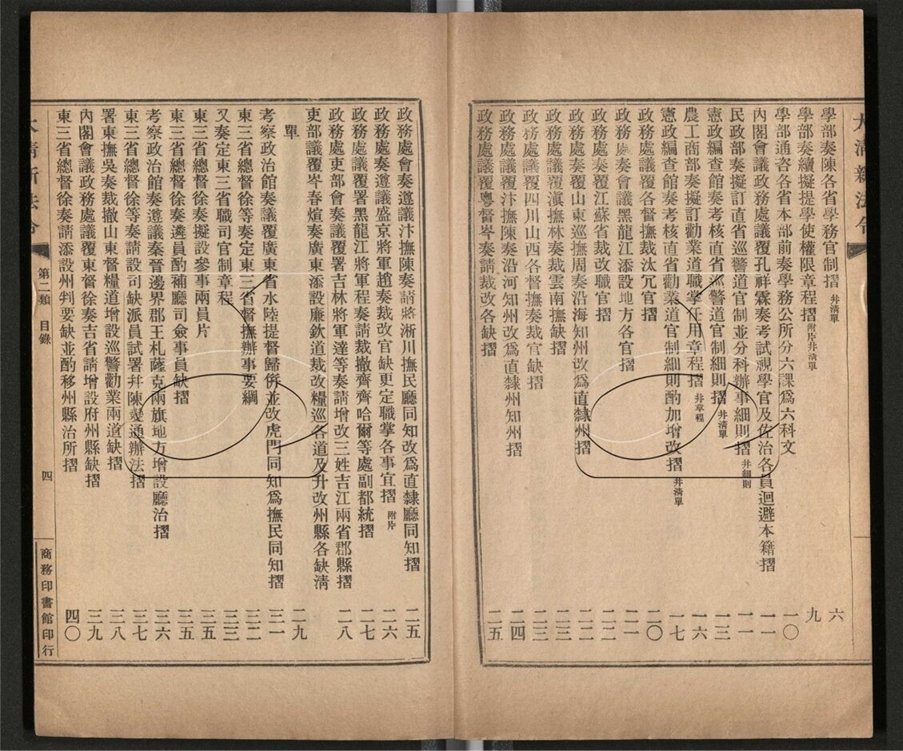 大清新法令
學部奏陳各省學務官制摺 并清單 六
學部奏續擬提學使權限章程摺 附片并清單 九
學部通咨各省本部前奏學務公所分六課爲六科文 一〇
內閣會議政務處議覆孔祥霖奏考試視學官及佐治各員迴避本籍摺 一一
民政部奏擬訂直省巡警道官制並分科辦事細則摺 并細則 一一
憲政編查館奏考核直省巡警道官制細則摺 并清單 一三
農工商部奏擬訂勸業道職掌任用章程摺 并章程 一六
憲政編查館奏考核直省勸業道官制細則酌加增改摺 并清單 一七
政務處議覆各督撫裁汰冗官摺 二〇
政務處奏會議黑龍江添設地方各官摺 二一
政務處奏議覆江蘇省裁改職官摺 二二
政務處議覆山東巡撫周奏沿海知州改爲直隸州摺 二二
政務處議覆滇撫林奏裁雲南撫缺摺 二三
政務處議覆四川山西各督撫奏裁官缺摺 二三
政務處議覆汴撫陳奏沿河知州改爲直隸州知州摺 二四
政務處議覆粵督岑奏請裁改各缺摺 二五
政務處會奏遵議汴撫陳奏請將淅川撫民廳同知改爲直隸廳同知摺 二五
政務處奏遵議盛京將軍趙奏裁改官缺更定職掌各事宜摺 附片 二六
政務處議覆署黑龍江將軍程奏請裁撤齊齊哈爾等處副都統摺 二七
政務處吏部會奏議覆署吉林將軍達等奏請增改三姓吉江兩省郡縣摺 二八
吏部議覆岑春煊奏廣東添設廉欽道裁改糧巡各道及升改州縣各缺清
單 二九
考察政治館奏議覆廣東省水陸提督歸併並改虎門同知爲撫民同知摺 三一
東三省總督徐等奏定東三省督撫辦事要綱 三二
又奏定東三省職司官制章程 三三
東三省總督徐奏擬設參事兩員片 三五
東三省總督徐奏遴員酌補廳司僉事員缺摺 三五
考察政治館奏遵議奏晉邊界郡王札薩克兩旗地方增設廳治摺 三六
東三省總督徐等奏請設司缺派員試署并陳變通辦法摺 三七
署東撫吳奏裁撤山東督糧道增設巡警勸業兩道缺摺 三八
內閣會議政務處議覆東督徐奏吉省請增設府州縣缺摺 三九
東三省總督徐奏請添設州判要缺並酌移州縣治所摺 四〇
大清新法令 第二類 目錄 四 商務印書館印行